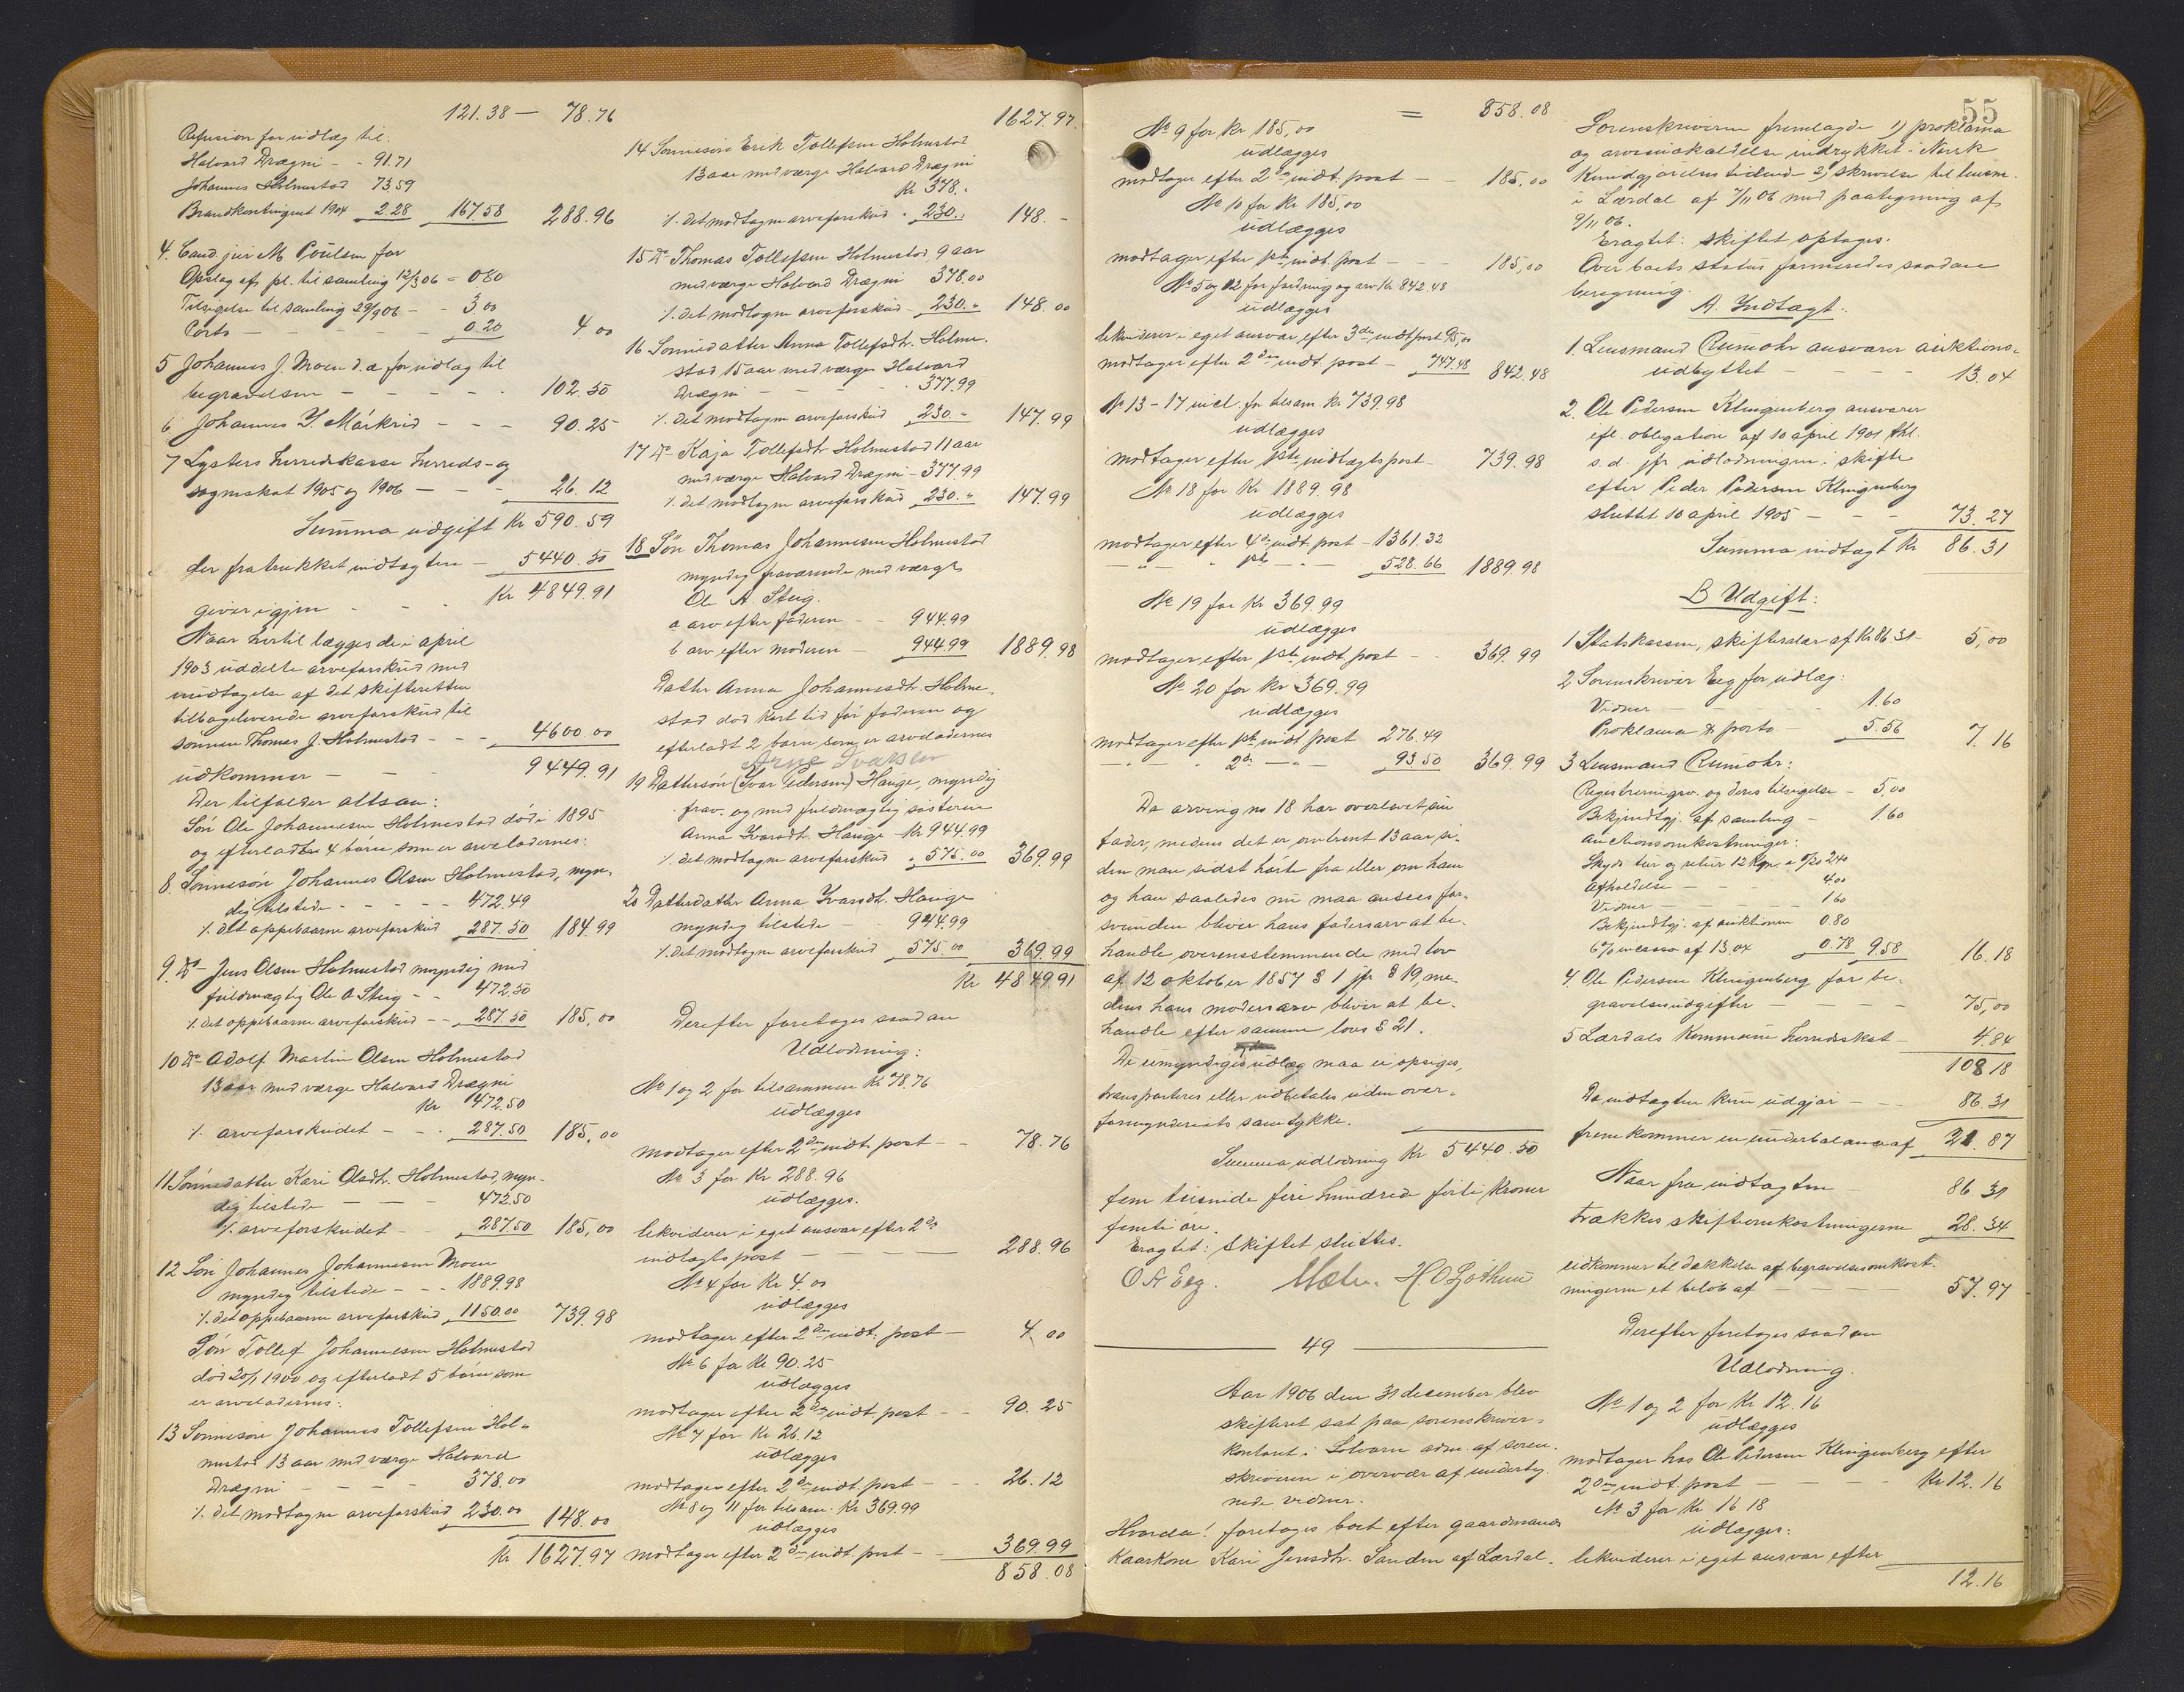 121.38 — 78.76
Refusion for udlæg til:
Halvard Drægni - - 91.71
Johannes Holmestad 73.59
Brandkontingent 1904 2.28 167.58 288.96
4. Cand. jur M Poulsen for
Opslag af pl. til samling 12/3 06 - 0.80
Tilsigelse til samling 29/9 06 - - 3.00
Porto — — — 0.20 4.00
5 Johannes J. Moen d.a for udlæg til
begravelsen — — — — 102.50
6 Johannes Y. Márkrid - - - 90.25
7 Lysters herredskasse herreds- og
sogneskat 1905 og 1906 — — - 26.12
Summa udgift Kr 590.59
der fratrukket indtægten — 5440.50
giver igjen - - - Kr 4849.91
Naar hertil lægges de i april
1903 uddelte arveforskud med
undtagelse af det skifteretten
tilbageleverede arveforskud til
sønnen Thomas J. Holmestad - - - 4600.00
udkommer — — 9449.91
Der tilfalder altsaa:
Søn Ole Johannesen Holmestad død i 1895
og efterladte 4 børn som er arveladernes:
8. Sønnesøn Johannes Olsen Holmestad, myn-
dig tilstede - - - - 472.49
÷ det oppebaarne arveforskud 287.50 184.99
9. Do - Jens Olsen Holmestad myndig med
fuldmægtig Ole A Steig - - 472.50
÷ det oppebaarne arveforskud - - 287.50 185,00
10 Do - Adolf Martin Olsen Holmestad
13 aar med værge Halvard Drægni
Kr 472.50
÷ arveforskudet - - - 287.50 185,00
11 Sønnedatter Kari Olsdtr. Holmestad, myn-
dig tilstede — — 472.50
÷ arveforskudet - - 287.50 185,00
12 Søn Johannes Johannesen Moen
myndig tilstede - - - 1889.98
÷ det oppebaarne arveforskud 1150.00 739.98
Søn Tollef Johannesen Holmestad
død 20/1 1900 og efterladt 5 børn som
er arveladernes:
13 Sønnesøn Johannes Tollefsen Hol-
mestad 13 aar med værge Halvard
Drægni — — - 378.00
÷ det modtagne arveforskud 230.00 148.00
Kr 1627.97
1627.97.
14 Sønnesøn Erik Tollefsen Holmestad
13 aar med værge Halvard Drægni
Kr 378.-
÷ det modtagne arveforskud - 230.- 148.-
15 Do Thomas Tollefsen Holmestad 9 aar
med værge Halvard Drægni 378.00
÷ det modtagne arveforskud - 230.- 148.00
16 Sønnedatter Anna Tollefsdtr. Holme-
stad 15 aar med værge Halvard
Drægni — - 377.99
÷ det modtagne arveforskud 230.- 147.99
17 Do - Kaja Tollefsdtr Holmestad 11 aar
med værge Halvard Drægni - 377.99
÷ det modtagne arveforskud 230.- 147.99
18 Søn Thomas Johannesen Holmestad
myndig fraværende med værge
Ole A. Steig.
a arv efter faderen - - 944.99
b arv efter moderen — 944.99 1889.98
Datter Anna Johannesdtr. Holme-
stad død kort tid før faderen og
efterladt 2 børn, som er arveladernes
Arne Ivarsen
19 Dattersøn (Ivar Pedersen) Hauge, myndig
frav. og med fuldmægtig søsteren
Anna Ivarsdtr. Hauge - Kr 944.99
÷ det modtagne arveforskud - 575.00 369.99
20 Datterdatter Anna Ivarsdtr. Hauge
myndig tilstede - 944.99
÷ det modtagne arveforskud 575.00 369.99
Kr 4849.91
Derefter foretoges saadan
Udlodning:
No 1 og 2 for tilsammen Kr 78.76
udlægges
modtager efter 2den indt. post - - 78.76
No 3 for Kr 288.96
udlægges.
likviderer i eget ansvar efter 2de
indtægts post — — — 288.96
No 4 for Kr 4.00
udlægges
modtager efter 2den indt. post - 4.00
No 6 for Kr 90.25
udlægges
modtager efter 2den indt. post - - 90.25
No 7 for Kr 26.12
udlægges
modtager efter 2den indt. post - - 26.12
No 8 og 11 for tilsam. Kr 369.99
udlægges
modtager efter 2den indt. post - - 369.99
858.08
= 858.08
No 9 for Kr 185,00
udlægges
modtager efter 2den indt. post — - 185,00
No 10 for Kr 185,00
udlægges
modtager efter 1ste indt. post — - - 185,00
No 5 og 12 for fordring og arv Kr 842.48
udlægges
likviderer i eget ansvar efter 3die indt post 95,00
modtager efter 2den indt. post - 747.48 842.48
No 13 - 17 incl. for tilsam Kr 739.98
udlægges
modtager efter 1ste indtægtspost - 739.98
No 18 for Kr 1889.98
udlægges
modtager efter 4de indt. post - 1361.32
— „ — „ 1ste — „ — 528.66 1889.98
No 19 for Kr 369.99
udlægges
modtager efter 1ste indt. post - - 369.99
No 20 for Kr 369.99
udlægges
modtager efter 1ste indt post 276.49
— „ — 2den — „ — 93.50 369.99
Da arving no 18 har overlevet sin
fader, medens det er omtrent 13 aar si-
den man sidst hørte fra eller om ham
og han saaledes nu maa ansees for-
svunden bliver hans fadersarv at be-
handle overensstemmende med lov
af 12 oktober 1857 § 1 jfr § 19, me-
dens hans modersarv bliver at be-
handle efter samme lovs § 21.
De umyndiges udlæg maa ei opsiges,
transporteres eller udbetales uden over-
formynderiets samtykke.
Summa udlodning Kr 5440.50
fem tusinde fire hundrede førti kroner
femti øre.
Eragtet: Skiftet sluttes.
O A Eeg. Mæhr. H. O Gothun
49
Aar 1906 den 31 december blev
skifteret sat paa sorenskriver-
kontoret i Solvorn adm. af soren-
skriveren i overvær af underteg-
nede vidner.
Hvorda! foretoges boet efter gaardmands
Kaarkone Kari Jensdtr. Sanden af Lærdal.
55
Sorenskriveren fremlagde 1) proklama
og arveindkaldelse indrykket i Norsk
Kundgjørelses tidende 2) skrivelse til lensm.
i Lærdal af 7/11 06 med paategning af
9/11 06.
Eragtet: Skiftet optages.
Over boets status formeredes saadan
beregning.
A. Indtægt:
1. Lensmand Rumohr ansvarer auktions-
udbyttet — — — - 13.04
2. Ole Pedersen Klingenberg ansvarer
ifl. obligation af 10 april 1901 thl.
s. d. jfr udlodningen i skifte
efter Peder Pedersen Klingenberg
sluttet 10 april 1905 — — - 73.27
Summa indtægt Kr 86.31
B Udgift:
1 Statskassen, skifteslær af Kr 86.31 - 5,00
2 Sorenskriver Eeg for udlæg:
Vidner — — — 1.60
Proklama & porto — 5.56 7.16
3 Lensmand Rumohr:
Registreringsv. og deres tilsigelse - 5,00
Bekjendtgj. af samling - 1.60
auctionsomkostninger:
Skyds tur og retur 12 kgm. a 0/20 2.40
Afholdelse — — 4.00
Vidner — — — 1.60
Bekjendtgj. af auktionen 0.80
6 % incasso af 13.04 0.78 9.58 16.18
4 Ole Pedersen Klingenberg for be-
gravelsesudgifter — — — 75,00
5 Lærdals Kommune herredskat - 4.84
108 18
Da indtægten kun udgjør — — 86.31
fremkommer en underbalance af 21.87
Naar fra indtægten — 86.31
trækkes skifteomkostningerne 28.34
udkommer til dækkelse af begravelsesomkost-
ningerne et beløb af — — — 57.97
Derefter foretoges saadan
Udlodning.
No 1 og 2 for Kr 12.16
udlægges
modtager hos Ole Pedersen Klingenberg efter
2den indt. post — — — Kr 12.16
No 3 for Kr 16.18
udlægges:
likviderer i eget ansvar efter
12.16